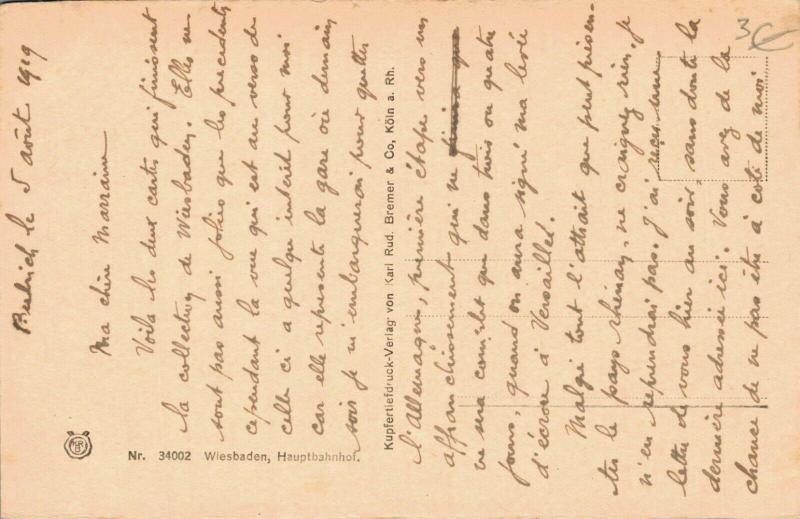 Biebrich le 5 août 1919
Ma chère Marraine
Voila les deux cartes qui finissent
la collection de Wiesbaden. Elles ne
sont pas aussi jolies que les precedents
cependant la vue qui est au verso de
celle ci a quelque intérêt pour moi
car elle represente la gare où demain
soir je m'embarquerai pour quitter
l'Allemagne, première étape vers un
affranchissement qui ne
sera complet que dans trois ou quatre
jours, quand on aura signé ma levée
d'écrou à Versailles.
Malgré tout l'attrait que peut présen-
ter le pays rhénan, ne craignez rien, je
n'en reprendrai pas. J'ai reçu une
lettre de vous hier au soir, sans doute la
dernière adressée ici. Vous avez de la
chance de ne pas être à coté de moi
Kupfertiefdruck-Verlag von Karl Rud. Bremer & Co, Köln a. Rh.
Nr. 34002 Wiesbaden, Hauptbahnhof.
3€